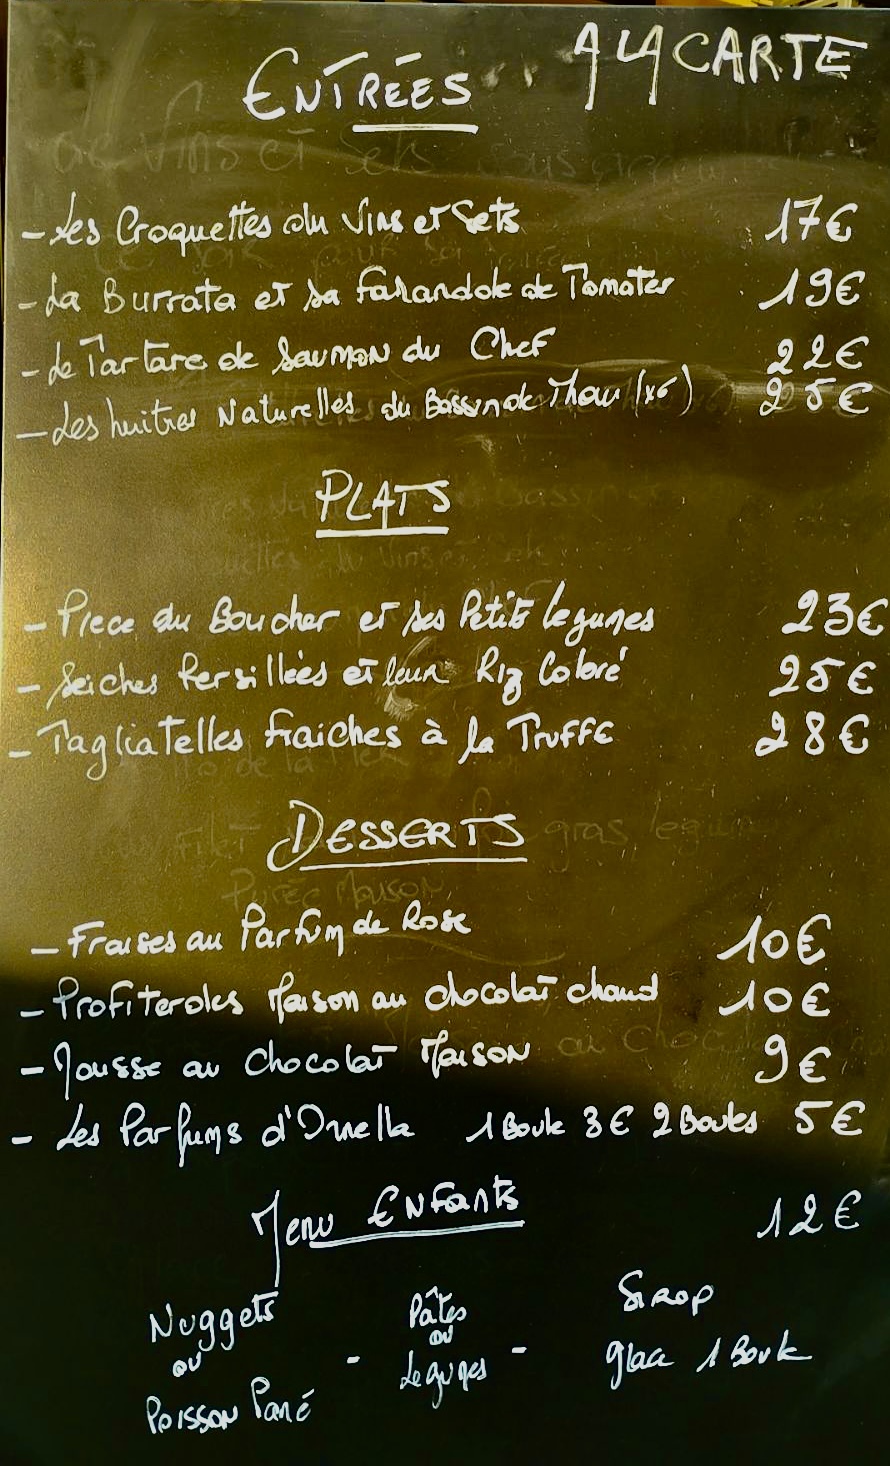 A LA CARTE
ENTRÉES
- Les Croquettes du Vins et Sets 17€
- La Burrata et sa Farandole de Tomates 19€
- Le Tartare de Saumon du Chef 22€
- Les huitres Naturelles du Bassin de Thau (x6) 25€
PLATS
- Piece du Boucher et ses Petits Legumes 23€
- Seiches Persillées et leur Riz Coloré 25€
- Tagliatelles fraiches à la Truffe 28€
DESSERTS
- Fraises au Parfum de Rose 10€
- Profiteroles Maison au chocolat chaud 10€
- Mousse au chocolat Maison 9€
- Les Parfums d'Ornella 1 Boule 3€ 2 Boules 5€
Menu Enfants 12€
Nuggets
ou
Poisson Pané
-
Pâtes
ou
Legumes
-
Sirop
glace 1 Boule